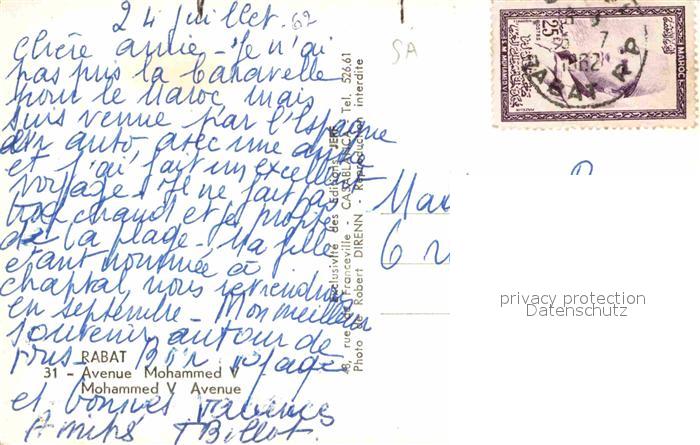 24 juillet 62
Chère amie - Je n'ai
pas pris la Caravelle
pour le Maroc mais
suis venue par l'Espagne
en auto avec une amie
et j'ai fait un excellent
voyage. Il ne fait pas
trop chaud et je profite
de la plage - Ma fille
étant nommée à
Chaptal, nous reviendrons
en septembre - Mon meilleur
souvenir autour de
vous - Bon voyage
et bonnes vacances
Amitiés TBillot.
RABAT
31 - Avenue Mohammed V
Mohammed V Avenue
Exclusivité des Editions JEFF
rue de Franceville - CASABLANCA - Tel. 526.61
Photo de Robert DIRENN - Reproduction interdite
SA
25F
POSTES
MAROC
RABAT R.P
7
1962
6 r
privacy protection
Datenschutz